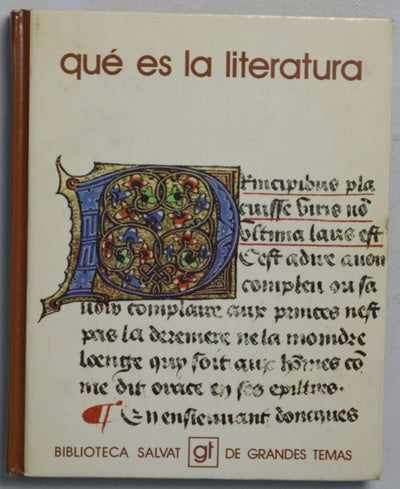 qué es la literatura
Principibus pla
cuisse viris nõ
vltima laus est
C'est a dire auoir
compleu ou sa
uoir complaire aux princes nest
pas la derreniere ne la moindre
loenge quy soit aux hõmes cõ
me dit orace en ses epistres.
¶ En ensieuuant doncques
BIBLIOTECA SALVAT gt DE GRANDES TEMAS